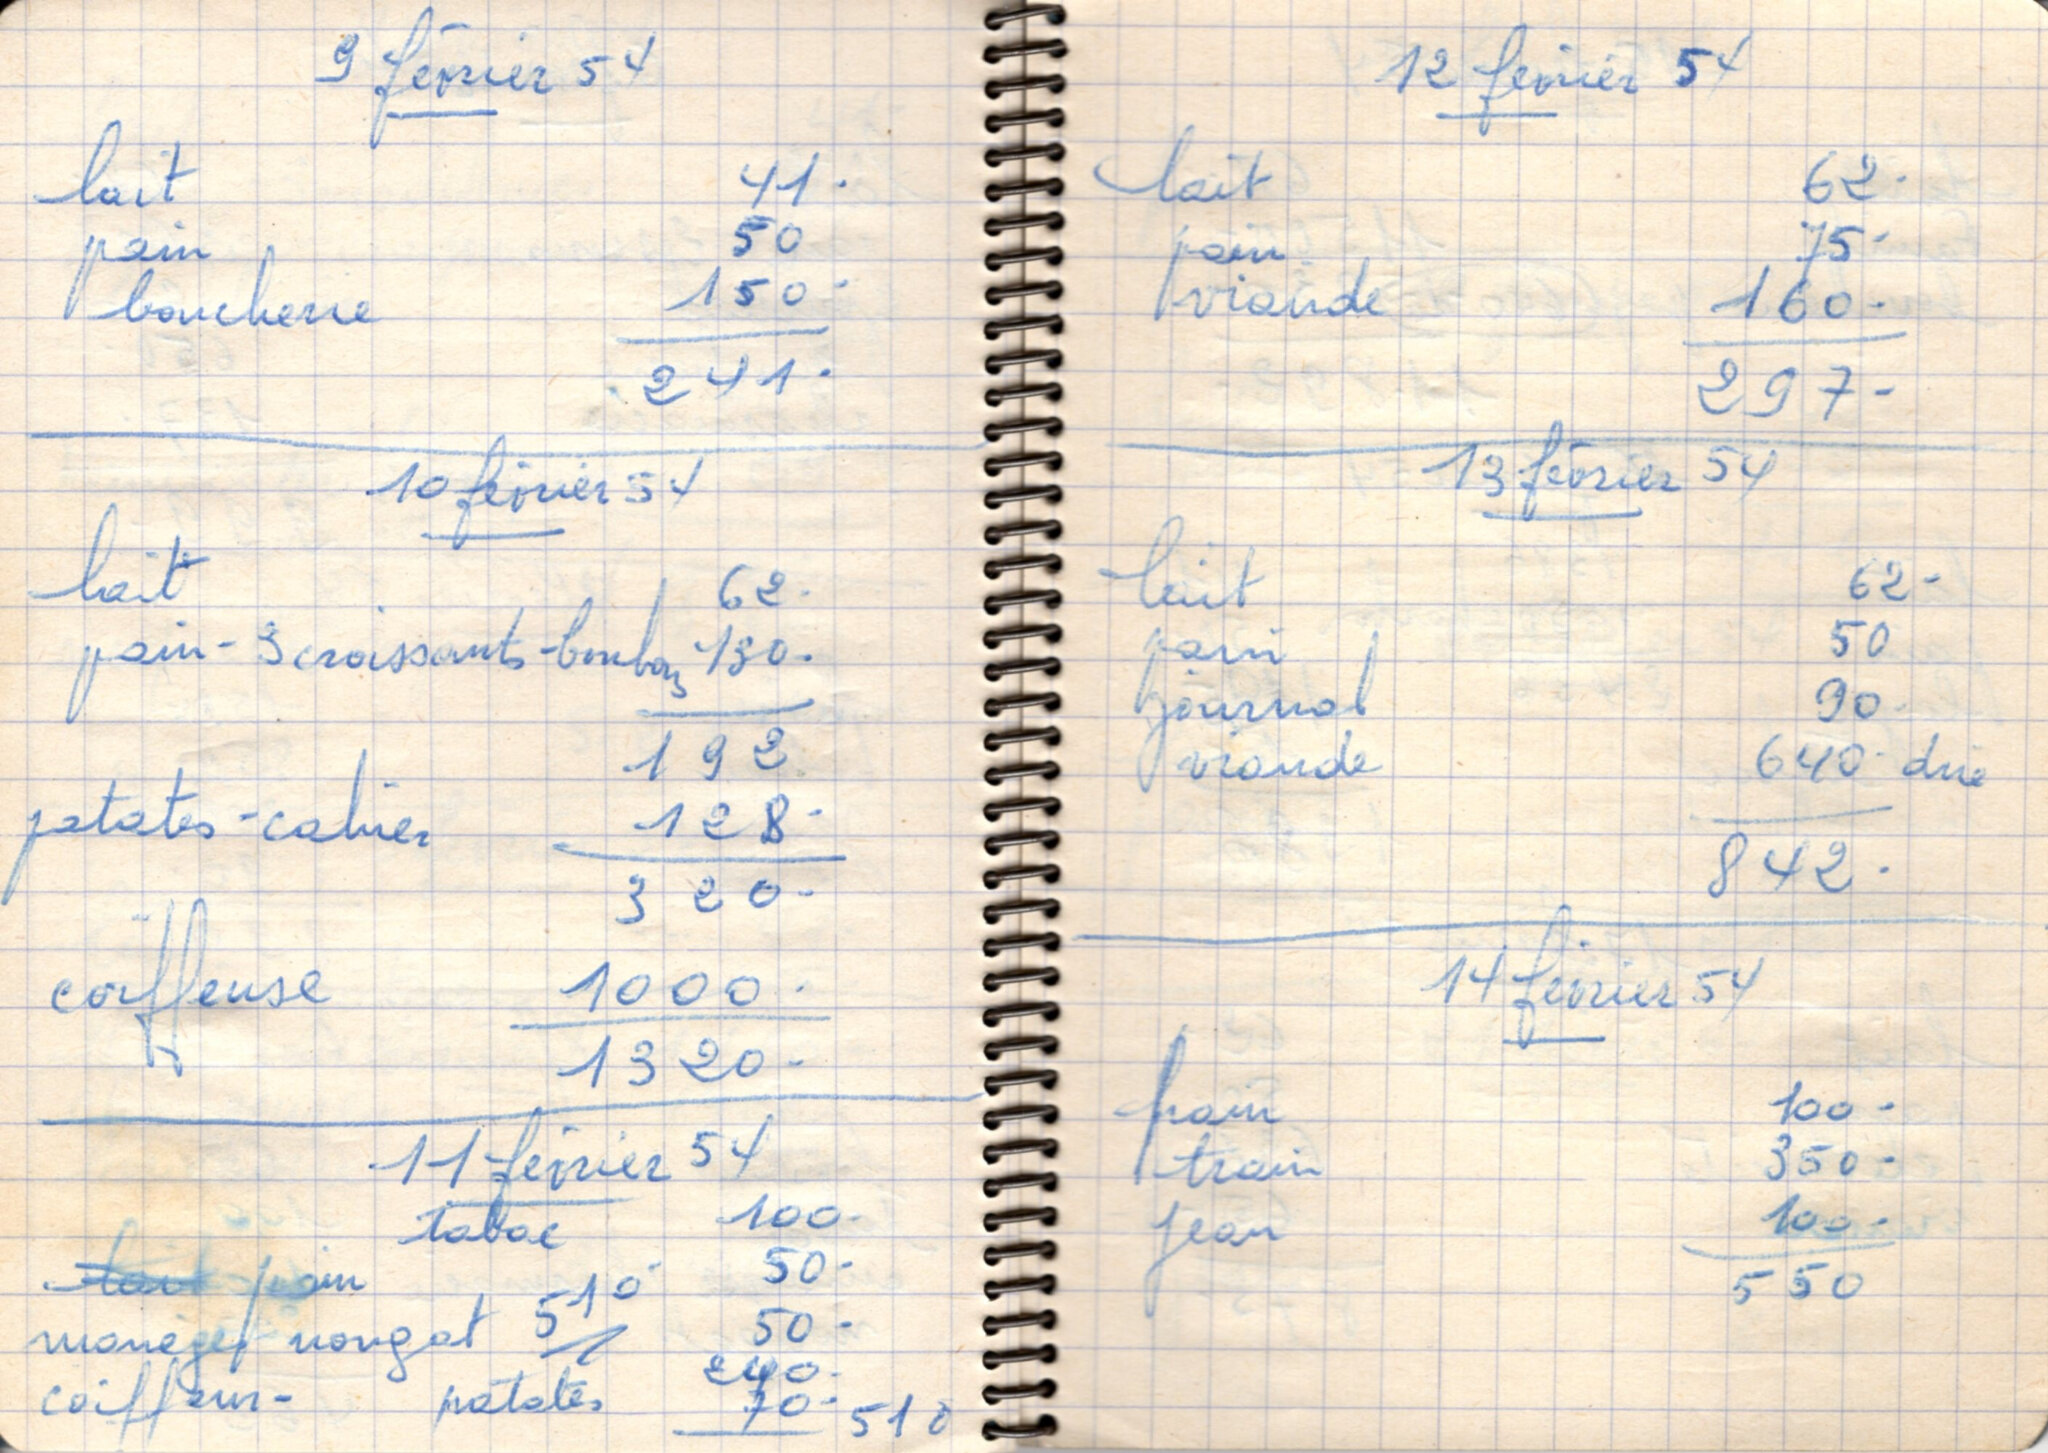 9 février 54
lait 41.
pain 50
boucherie 150-
241.
10 février 54
lait 62.
pain - 3 croissants - bonbons 130.
192
patates - cahier 128-
320-
coiffeuse 1000.
1320-
11 février 54
tabac 100-
lait pain 50-
manège nougat 510 50-
240-
coiffeur- patates 70- 510
12 février 54
lait 62-
pain 75-
viande 160-
297-
13 février 54
lait 62-
pain 50
journal 90-
viande 640-
842.
14 février 54
pain 100-
train 350-
jean 100-
550